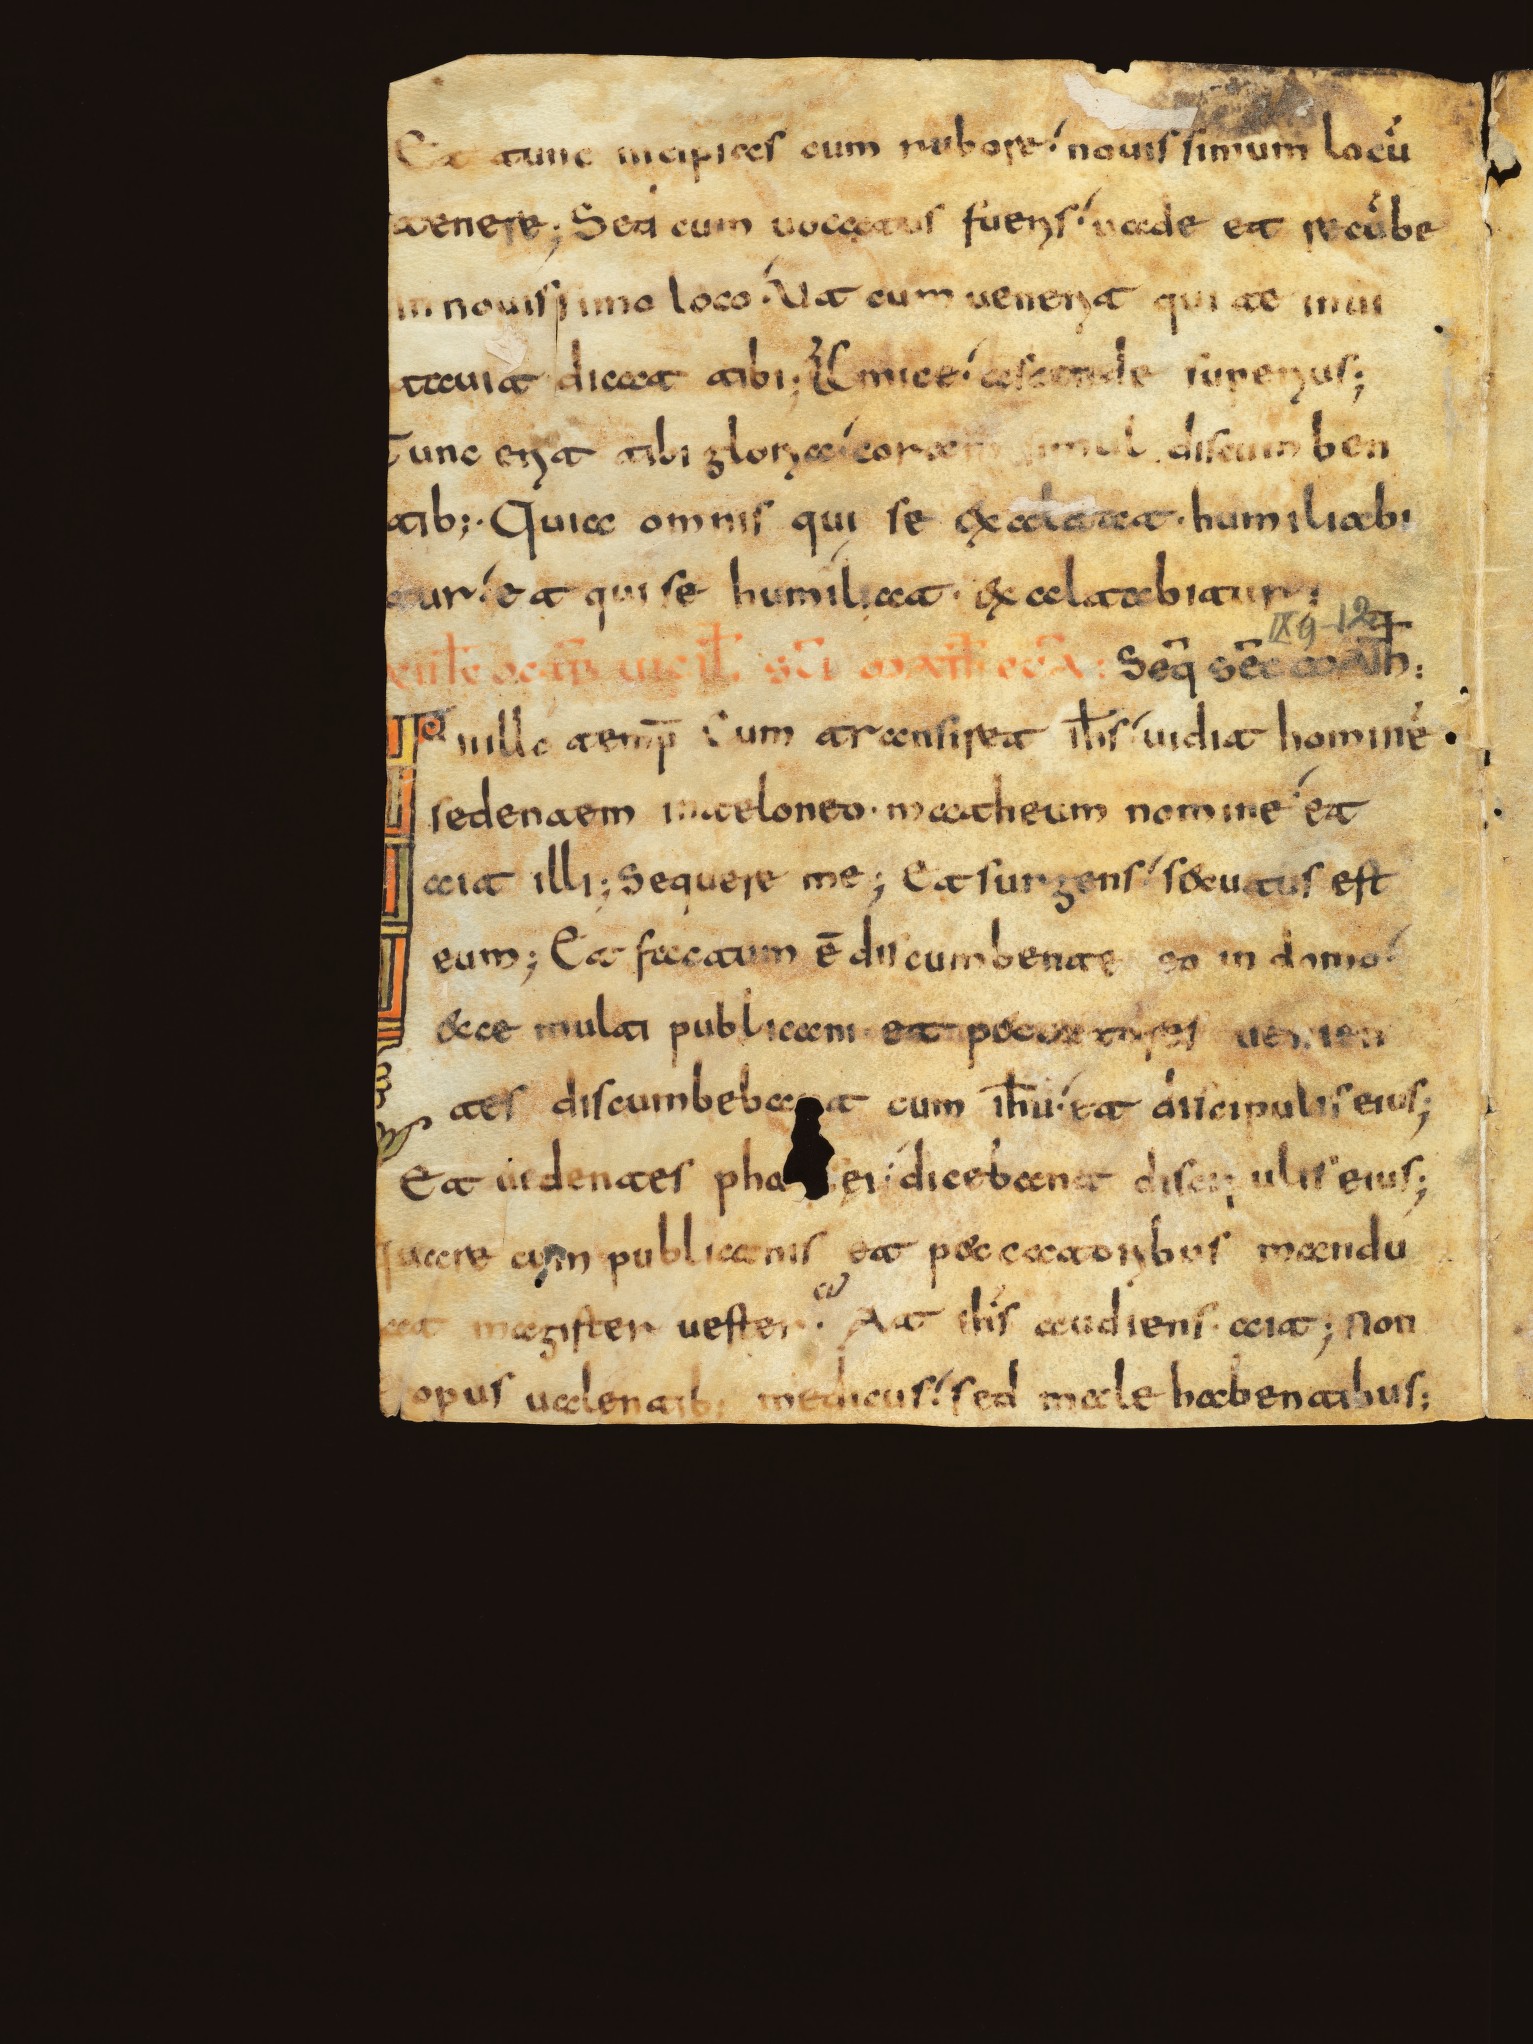 Et tunc incipias cum rubore novissimum locū
tenere; Sed cum vocatus fueris vade et recūbe
in novissimo loco. Ut cum venerit qui te invi
tavit dicat tibi; Amice ascende superius;
Tunc erit tibi gloria coram simul discumben
tib; Quia omnis qui se exaltat. humiliabi
tur et qui se humiliat. exaltabitur;
IX 9-12
sc̄i Seq̄ sc̄ math:
In illo temp̄ Cum transiret ih̄s vidit hominē
sedentem in teloneo. mattheum nomine et
ait illi; Sequere me; Et surgens secutus est
eum; Et factum ē discumbente eo in domo
ecce multi publicani et peccatores venien
tes discumbebant cum ih̄u. et discipulis eius;
Et videntes pha ei. dicebant discipulis eius;
quare cum publicanis et peccatoribus mandu
cat magister vester. At ih̄s audiens. ait; Non
opus valentib; medicus sed male habentibus;